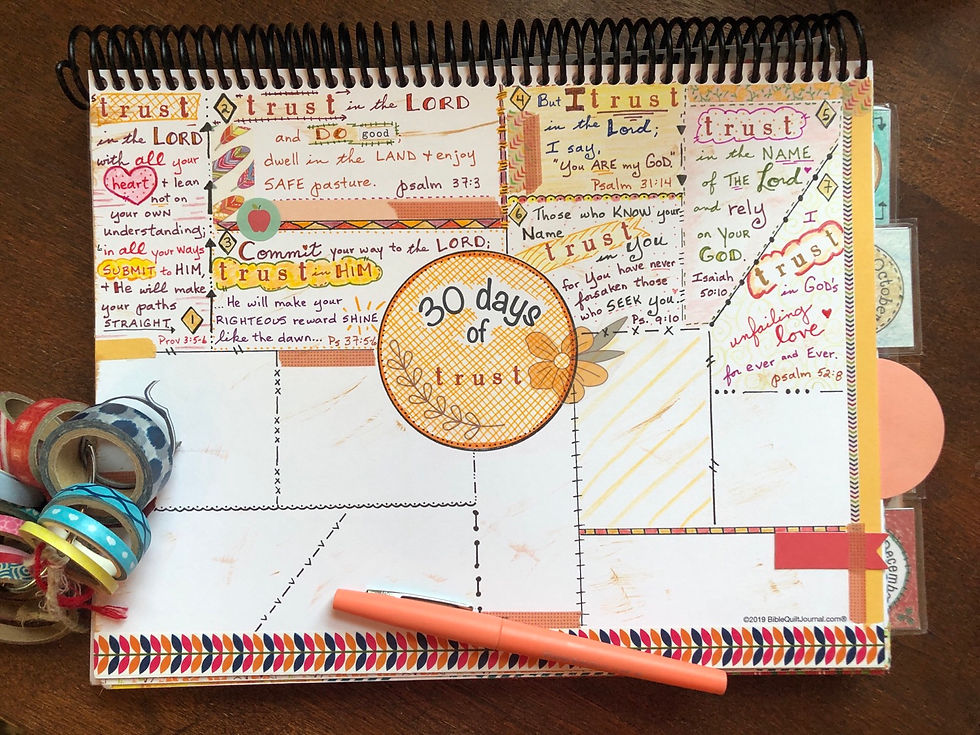 trust
in the LORD
with all your
heart + lean
not on
your own
understanding;
in all your ways
SUBMIT to HIM,
+ He will make
your paths
STRAIGHT
1
Prov 3:5-6
2
trust in the LORD
and DO good
dwell in the LAND + enjoy
SAFE pasture. psalm 37:3
3
Commit your way to the LORD;
trust in HIM
...He will make your
RIGHTEOUS reward SHINE
like the dawn... Ps 37:5-6
4
But I trust
in the Lord;
I say,
"You ARE my GOD."
Psalm 31:14
6
Those who KNOW your
Name
trust
in you
for You have never
forsaken those
who SEEK you.
Ps. 9:10
5
trust
in the NAME
of THE Lord
and rely
on YOUR
GOD.
Isaiah
50:10
7
I
trust
in GOD's
unfailing
love
for ever and Ever.
psalm 52:8
30 days
of
trust
October
Decembe
©2019 BibleQuiltJournal.com®